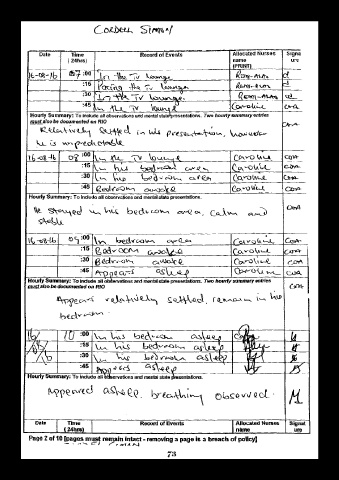 Date Time (24hrs) Record of Events Allocated Nurses name (PRINT) Signature
16-08-16 07 :00 In the TV lounge
:15 Pacing the TV lounge
:30 In the TV lounge
:45 In the TV lounge Caroline
Hourly Summary: To include all observations and mental state presentations. Two hourly summary entries
must also be documented on RIO
Relatively settled in his presentation, however
he is unpredictable
16-08-16 08 :00 In the TV lounge Caroline
:15 In his bedroom area Caroline
:30 In his bedroom area Caroline
:45 Bedroom awake Caroline
Hourly Summary: To include all observations and mental state presentations.
He stayed in his bedroom area, calm and
stable
16-08-16 09 :00 In bedroom area Caroline
:15 Bedroom awake Caroline
:30 Bedroom awake Caroline
:45 Appears asleep Caroline
Hourly Summary: To include all observations and mental state presentations. Two hourly summary entries
must also be documented on RIO
Appears relatively settled, remain in his
bedroom.
10 :00 In his bedroom asleep
:15 In his bedroom asleep
:30 In his bedroom asleep
:45 Appears asleep
Hourly Summary: To include all observations and mental state presentations.
Appeared asleep, breathing observed.
Date Time (24hrs) Record of Events Allocated Nurses name Signature
Page 2 of 10 [pages must remain intact - removing a page is a breach of policy]
73